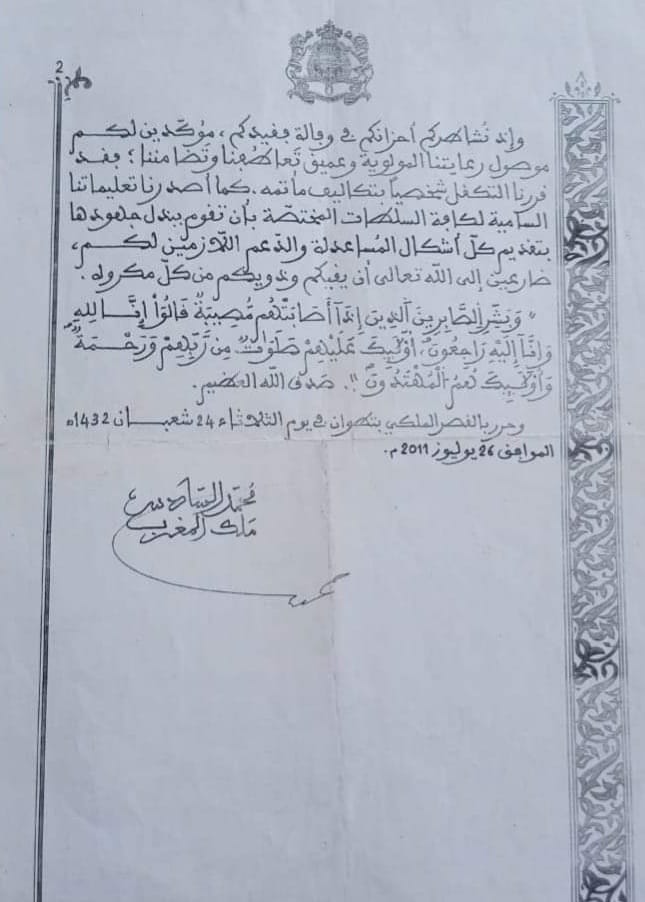 2
وإذ نُشاطركم أحزانكم في وفاة فقيدكم، مؤكدين لكم
موصول رعايتنا المولوية وعميق تَعاطفنا وتَضامننا؛ فقد
قررنا التكفل شخصياً بتكاليف مأتمه. كما أصدرنا تعليماتنا
السامية لكافة السلطات المختصّة بأن تقوم ببذل جهودها
بتقديم كلّ أشكال المُساعدة والدّعم اللاّزمَيْن لكم،
ضارعين إلى الله تعالى أن يقيكم وذويكم من كلّ مكروه.
"وَبَشِّرِ الصَّابِرِينَ الَّذِينَ إِذَا أَصَابَتْهُم مُّصِيبَةٌ قَالُوا إِنَّا لِلهِ
وَإِنَّا إِلَيْهِ رَاجِعُونَ، أُوْلَئِكَ عَلَيْهِمْ صَلَوَاتٌ مِّن رَّبِّهِمْ وَرَحْمَةٌ
وَأُوْلَئِكَ هُمُ الْمُهْتَدُونَ". صدق الله العظيم.
وحرر بالقصر الملكي بتطوان في يوم الثلاثاء 24 شعبان 1432ه
الموافق 26 يوليوز 2011 م.
محمد السادس
ملك المغرب